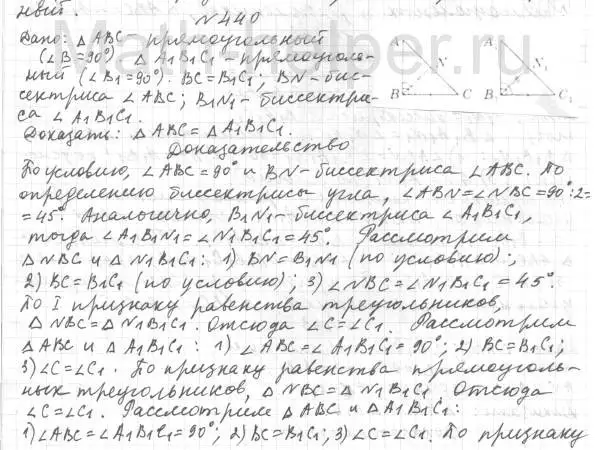 ный.
№ 440
Дано: △ ABC - прямоугольный
(∠B=90°) △ A1B1C1 - прямоуголь-
ный (∠B1=90°). BC=B1C1; BN-бис-
сектриса ∠ABC; B1N1- биссектри-
са ∠ A1B1C1.
Доказать: △ ABC = △ A1B1C1.
A N B C A1 N1 B1 C1
Доказательство
По условию, ∠ABC=90° и BN-биссектриса ∠ABC. По
определению биссектрисы угла, ∠ABN=∠NBC=90°:2=
=45°. Аналогично, B1N1-биссектриса ∠A1B1C1,
тогда ∠A1B1N1=∠N1B1C1=45°. Рассмотрим
△NBC и △N1B1C1: 1) BN=B1N1 (по условию);
2) BC=B1C1 (по условию); 3) ∠NBC=∠N1B1C1=45°.
По I признаку равенства треугольников,
△NBC=△N1B1C1. Отсюда ∠C=∠C1. Рассмотрим
△ABC и △A1B1C1: 1) ∠ABC=∠A1B1C1=90°; 2) BC=B1C1;
3) ∠C=∠C1. По признаку равенства прямоуголь-
ных треугольников, △NBC=△N1B1C1. Отсюда
∠C=∠C1. Рассмотрим △ABC и △A1B1C1:
1) ∠ABC=∠A1B1C1=90°; 2) BC=B1C1; 3) ∠C=∠C1. По признаку